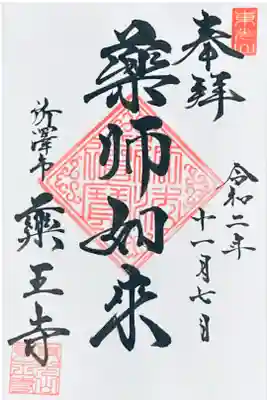 奉拜
令和二年
十一月七日
藥師如来
所澤市
藥王寺